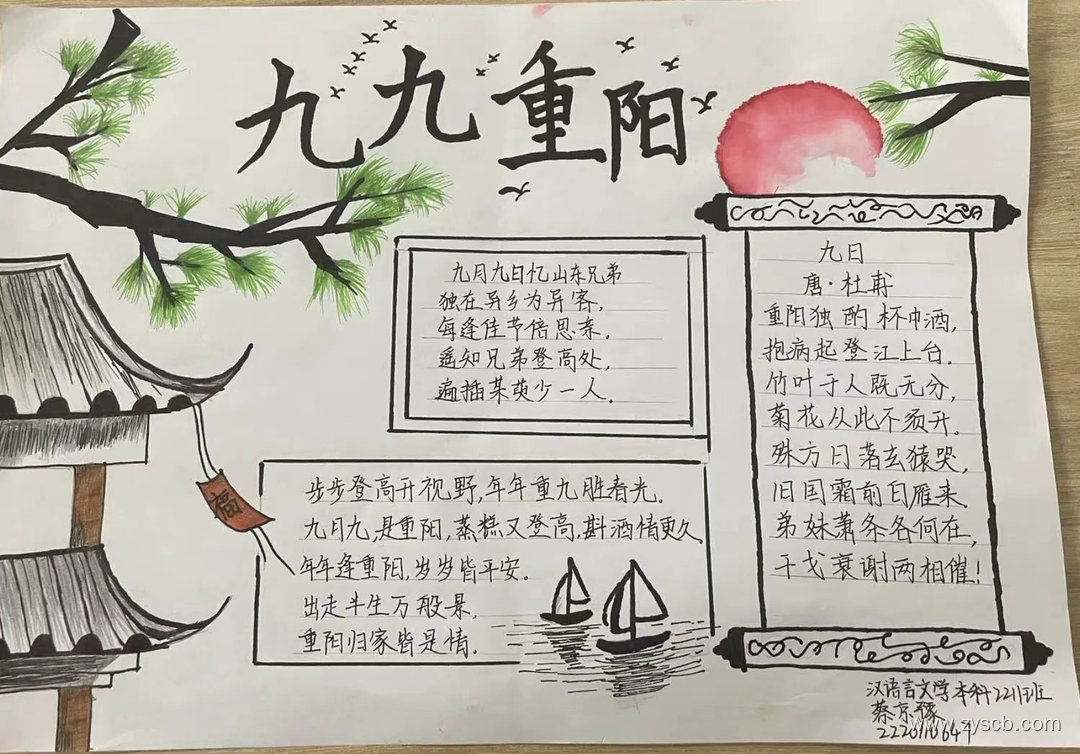 九九重阳
九月九日忆山东兄弟
独在异乡为异客，
每逢佳节倍思亲。
遥知兄弟登高处，
遍插茱萸少一人。
步步登高开视野，年年重九胜春光。
九月九，是重阳，蒸糕又登高，斟酒情更久
年年逢重阳，岁岁皆平安。
出走半生万般景，
重阳归家皆是情。
福
九日
唐·杜甫
重阳独酌杯中酒，
抱病起登江上台。
竹叶于人既无分，
菊花从此不须开。
殊方日落玄猿哭，
旧国霜前白雁来
弟妹萧条各何在，
干戈衰谢两相催！
汉语言文学本科2211班
蔡京豫
www.zyscb.com